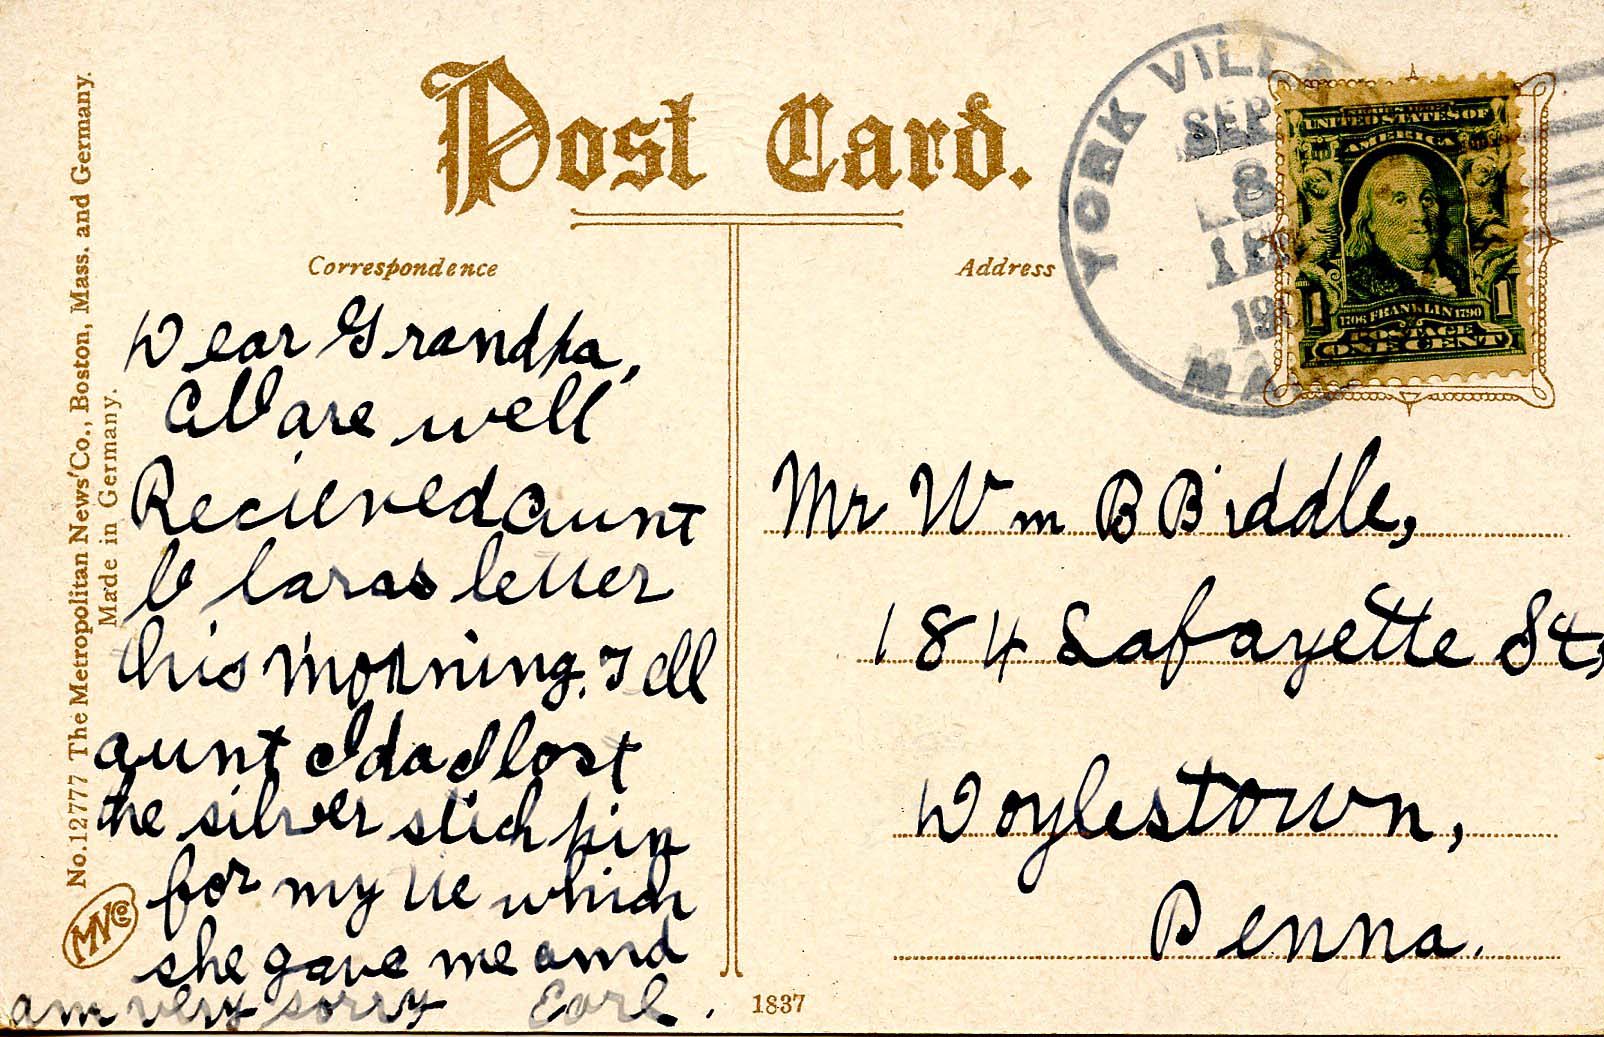 Post Card.
Correspondence
Address
No. 12777 The Metropolitan News Co., Boston, Mass. and Germany.
Made in Germany.
Dear Grandpa,
All are well
Recieved aunt
Claras letter
this morning. Tell
aunt Ida I lost
the silver stick pin
for my tie which
she gave me and
am very sorry Earl.
MNCo
YORK
SEP
8
19
UNITED STATES OF
AMERICA
1 1
1706 FRANKLIN 1790
POSTAGE
ONE CENT
Mr Wm B Biddle,
184 Lafayette St,
Doylestown,
Penna.
1837